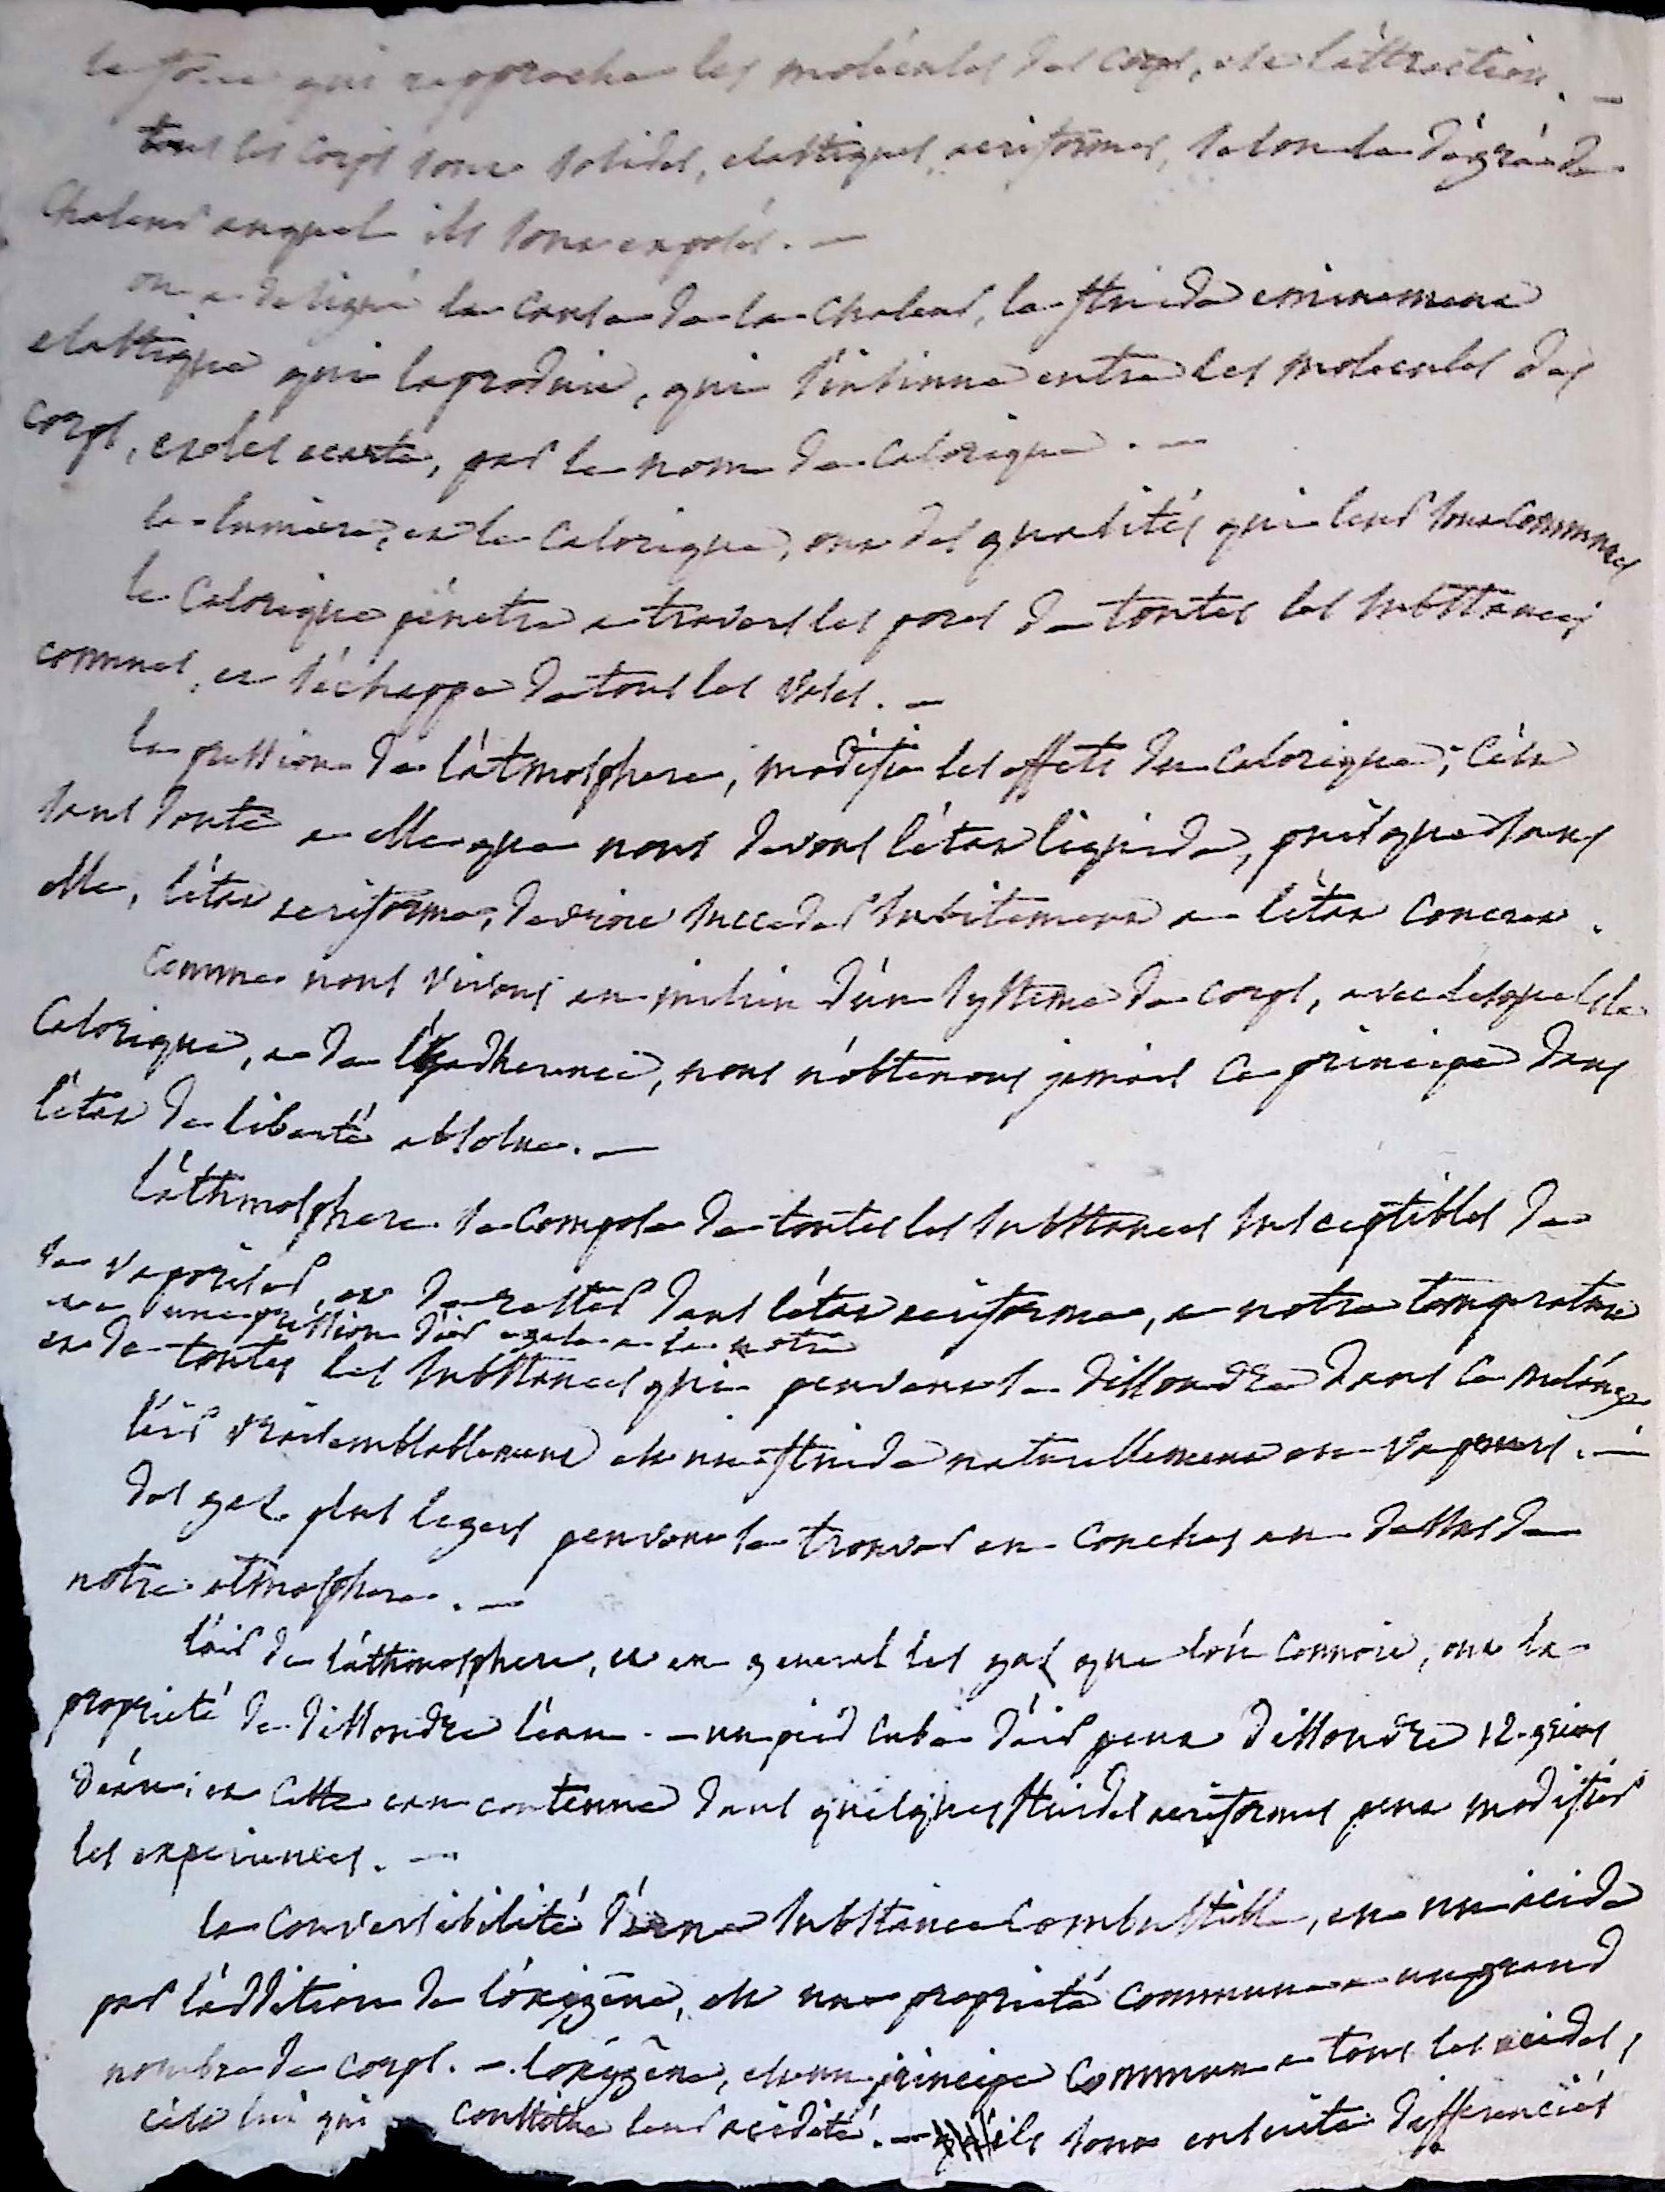 la force qui rapproche les molécules des corps, est l'attraction. —
tous les corps sont solides, elastiques, aeriformes, selon le dégré de
chaleur auquel ils sont exposés. —
on a designé la cause de la chaleur, le fluide eminemment
elastique qui la produit, qui s'insinue entre les molecules des
corps, et les ecarte, par le nom de calorique. —
la lumiere, et le calorique, ont des qualités qui leur sont communes
le calorique pénetre a travers les pores de toutes les substances
connues, et s'échappe de tous les vases. —
la pression de l'atmosphere, modifie les effets du calorique; c'est
sans doute a elle que nous devons l'état liquide, puisque sans
elle, l'état aeriforme, devroit succeder subitement a l'état concret.
comme nous vivons au milieu d'un systeme de corps, avec lesquels le
calorique, a de l'adherence, nous n'obtenons jamais ce principe dans
l'état de liberté absolue. —
l'athmosphere se compose de toutes les substances susceptibles de
se vaporiser, et de rester dans l'état aeriforme, a notre temperature
et a une pression d'air egale a la notre
et de toutes les substances qui peuvent se dissoudre dans ce mélange
l'air vraisemblablement est un fluide naturellement en vapeurs. —
des gaz plus legers peuvent se trouver en couches au dessus de
notre atmosphere. —
l'air de l'athmosphere, et en general les gaz que l'on connoit, ont la
proprieté de dissoudre l'eau. — un pied cube d'air peut dissoudre 12 grains
d'eau; et cette eau contenue dans quelques fluides aeriformes peut modifier
les experiences. —
la convertibilité d'une substance combustible, en un acide
par l'addition de l'oxigène, est une proprieté commune a un grand
nombre de corps. — l'oxigène, est un principe commun a tous les acides,
c'est lui qui constitue leur acidité. — ils sont ensuite differenciés